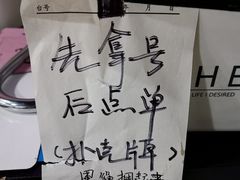 台号 年 月 日
先拿号
后点单
(扑克牌)
HE
LIFE I DESIRED